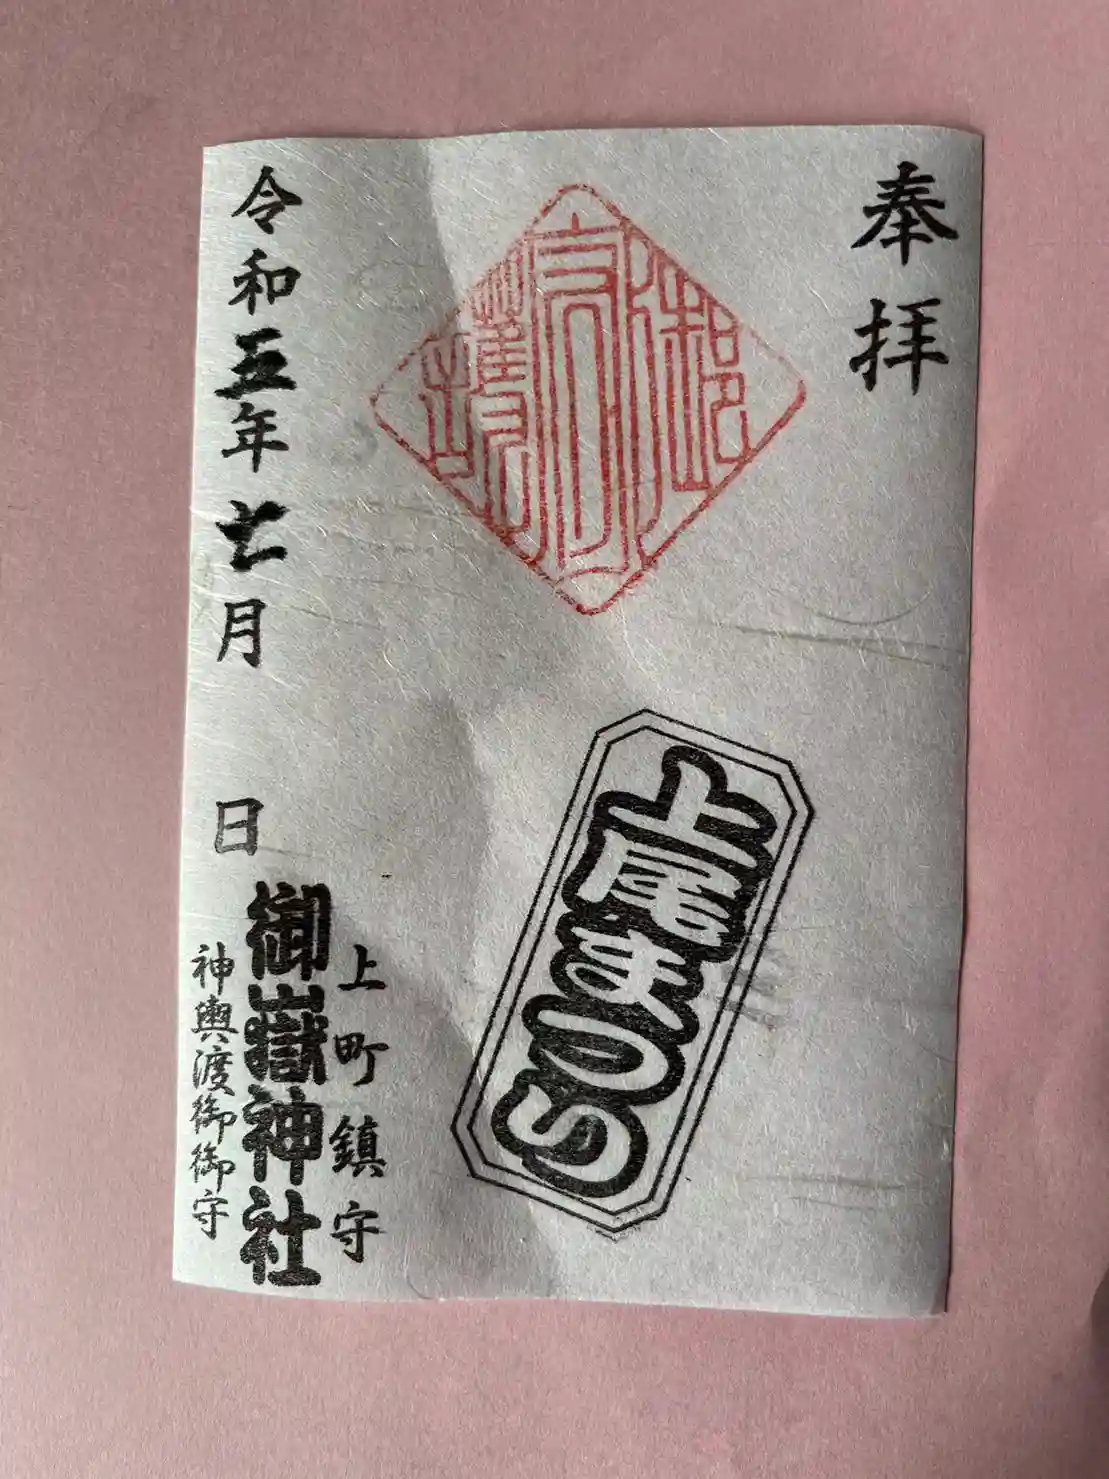 奉拝
上尾まつり
上町鎮守
御嶽神社
神輿渡御御守
令和五年七月 日